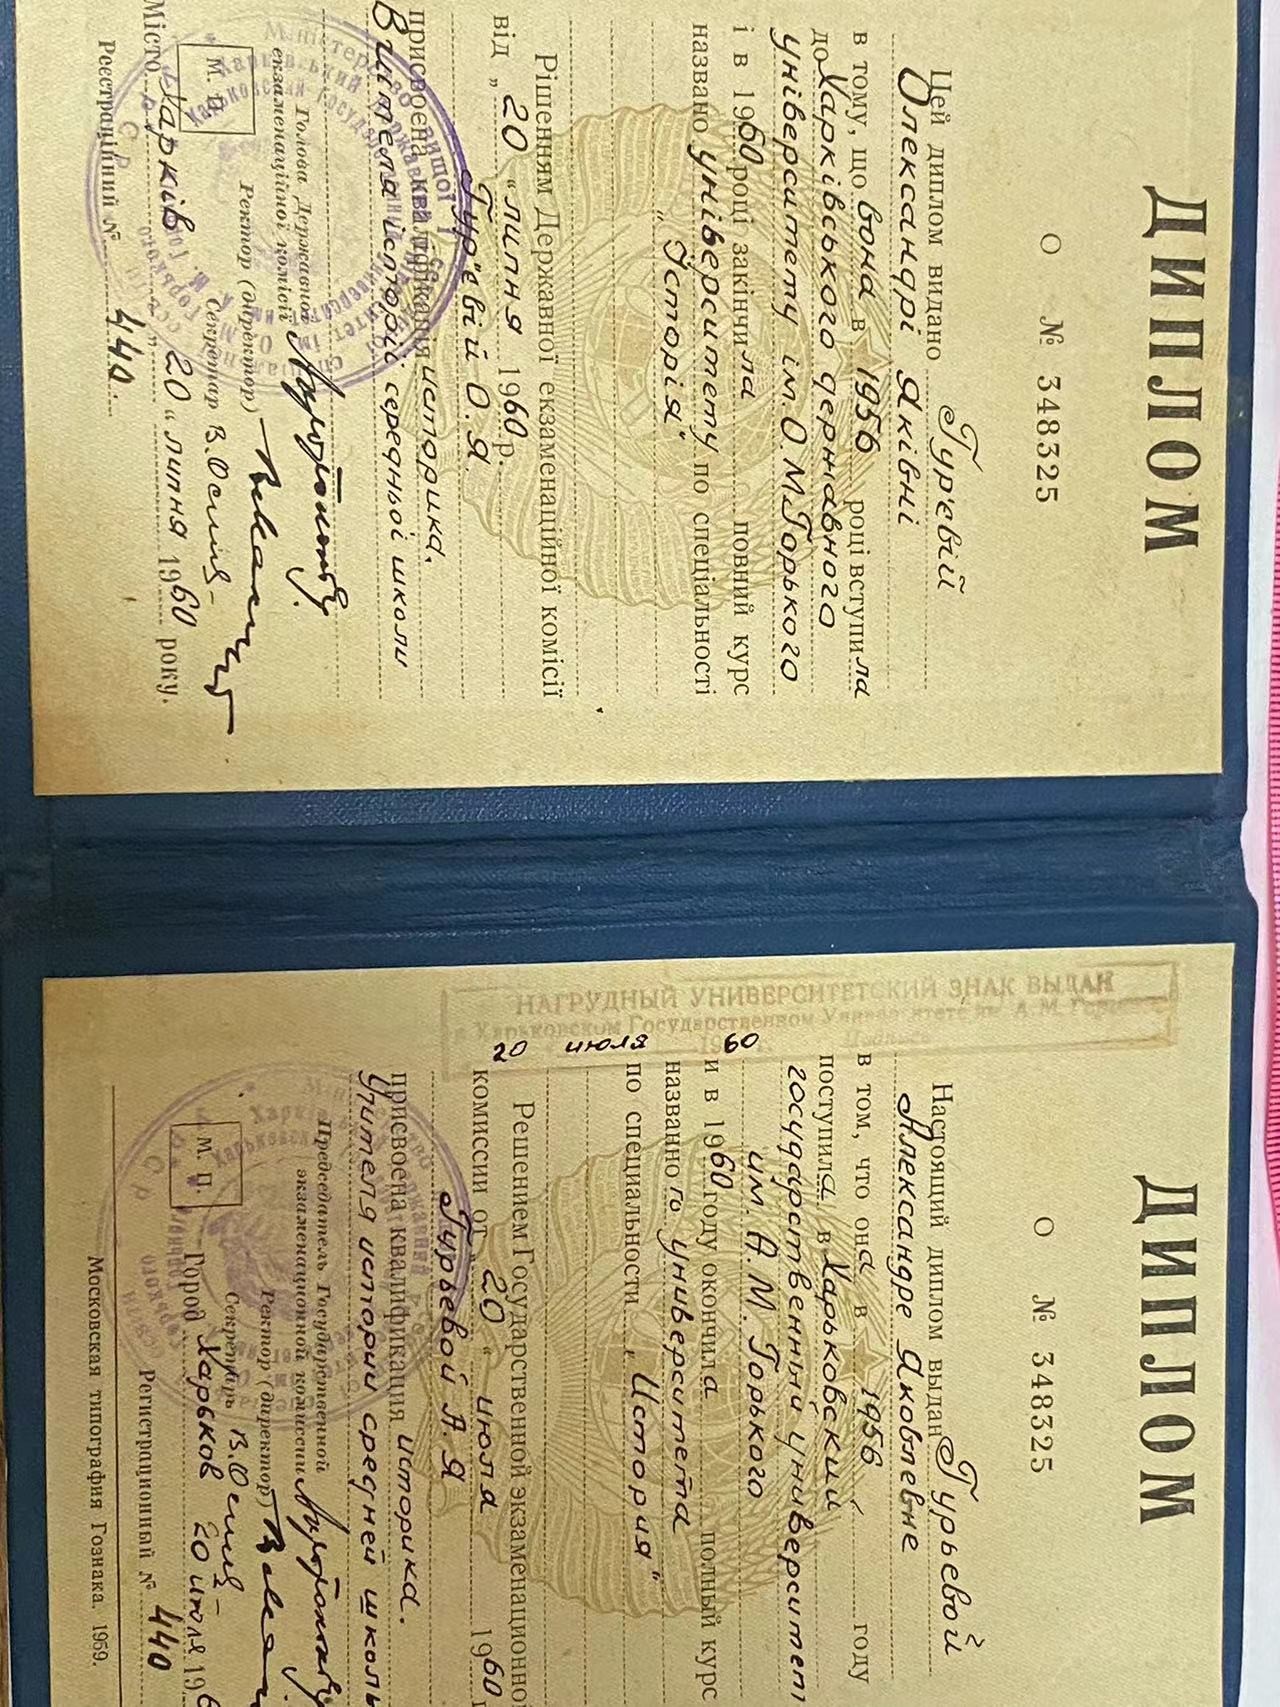 ДИПЛОМ
О № 348325
Цей диплом видано Гур'євій
Олександрі Яківні
в тому, що вона в 1956 році вступила
до Харківського державного
університету ім. О. М. Горького
і в 1960 році закінчила повний курс
названо університету по спеціальності
„Історія"
Рішенням Державної екзаменаційної комісії
від „20" липня 1960 р.
Гур'євій О. Я.
присвоєна кваліфікація историка,
Вчителя історії середньої школи
Голова Державної
екзаменаційної комісії
Ректор (директор)
Секретар
М. П.
Місто Харків „20" липня 1960 року.
Реєстраційний № 440.
ДИПЛОМ
О № 348325
Настоящий диплом выдан Гурьевой
Александре Яковлевне
в том, что она в 1956 году
поступила в Харьковский
государственный университет
им. А. М. Горького
и в 1960 году окончила полный курс
названного университета
по специальности „История"
Решением Государственной экзаменационной
комиссии от „20" июля 1960
Гурьевой А. Я
присвоена квалификация историка.
Учителя истории средней школы
Председатель Государственной
экзаменационной комиссии
Ректор (директор)
Секретарь
М. П.
Город Харьков 20 июля 196
Регистрационный № 440
Московская типография Гознака. 1959.
НАГРУДНЫЙ УНИВЕРСИТЕТСКИЙ ЗНАК ВЫДАН
в Харьковском Государственном Университете им. А. М. Горького
20 июля 60